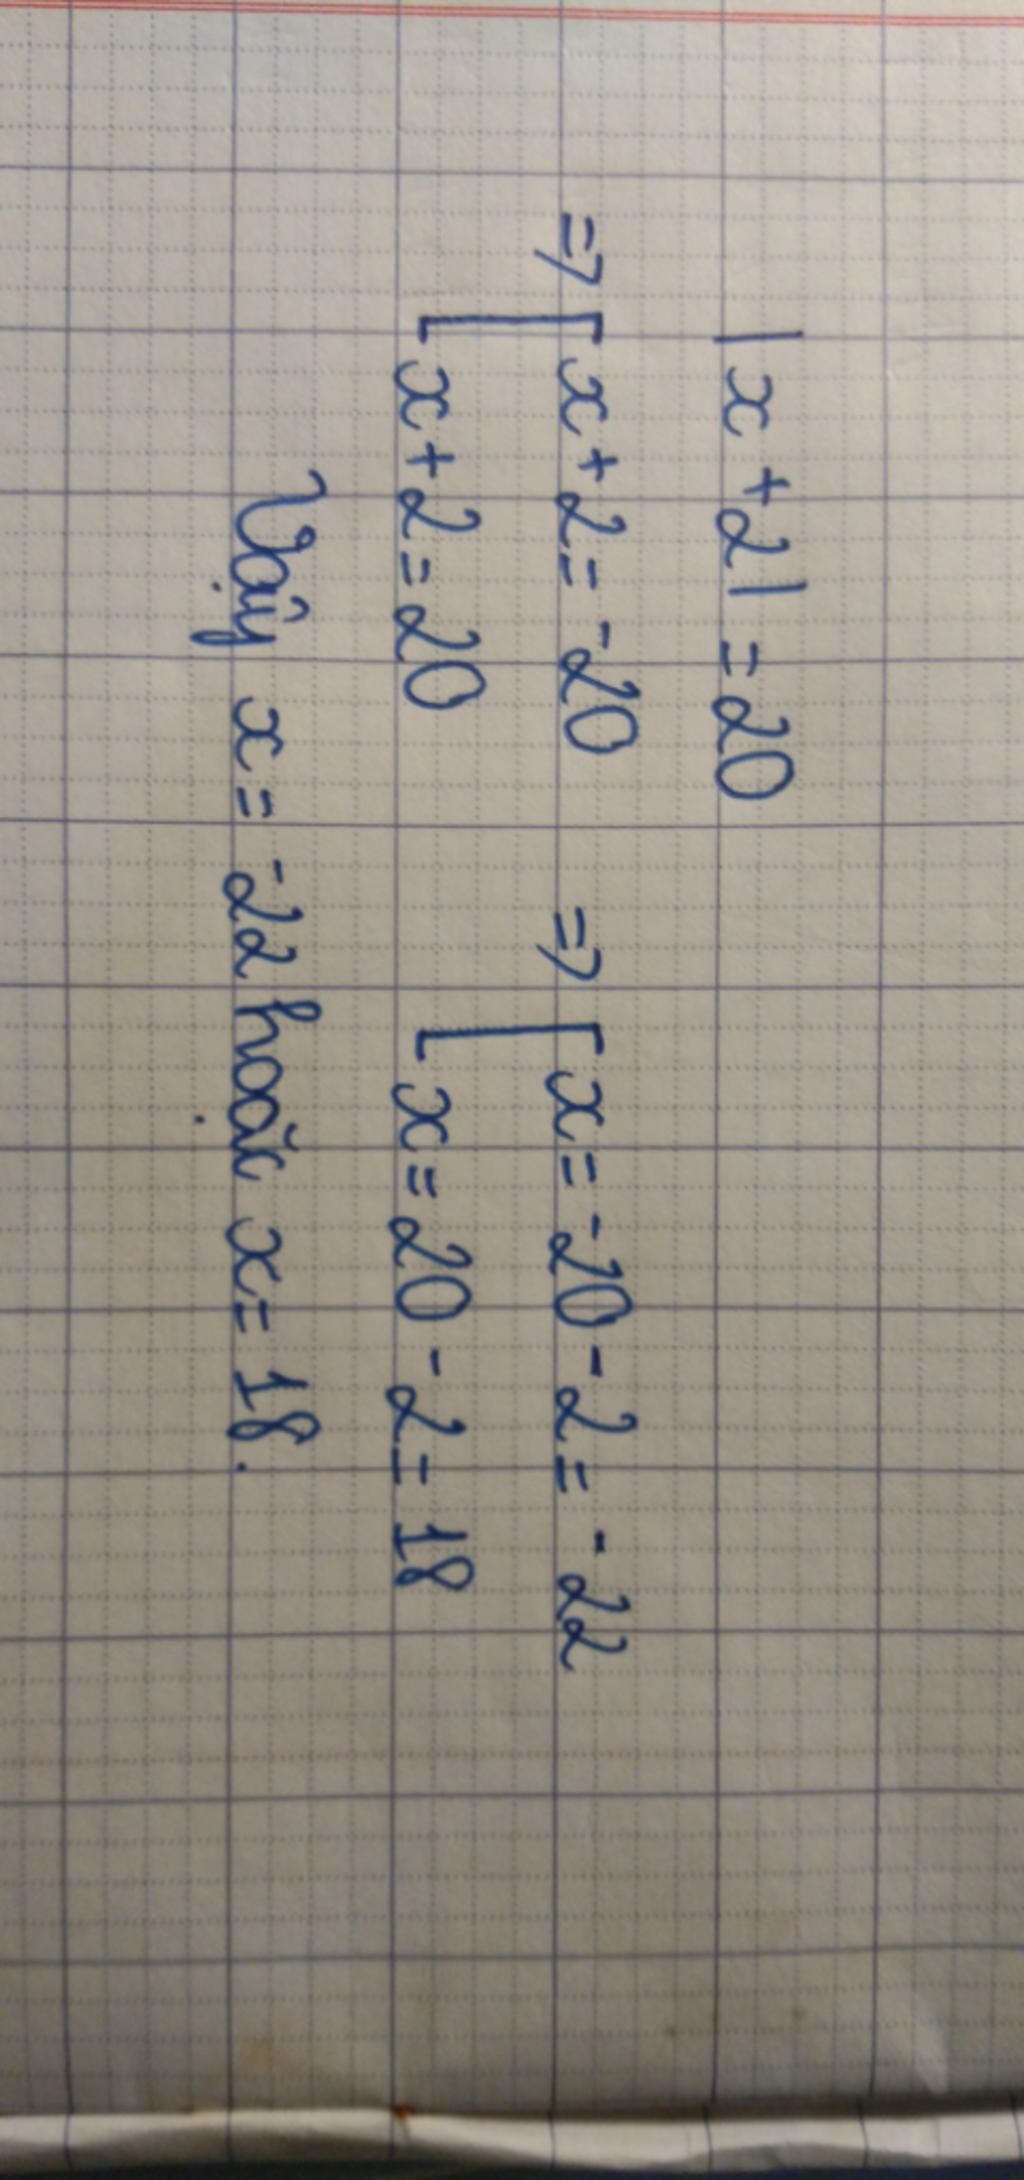 |x + 2| = 20
=> [ x + 2 = -20 => [ x = -20 - 2 = -22
[ x + 2 = 20 [ x = 20 - 2 = 18
Vậy x = -22 hoặc x = 18.